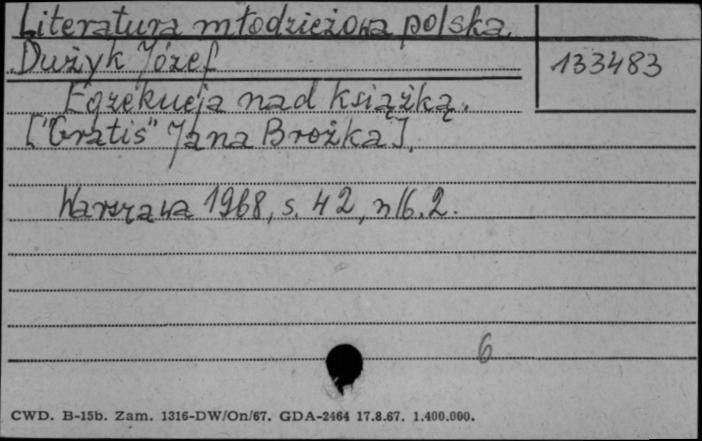 Literatura młodzieżowa polska.
Dużyk Józef
133483
Egzekucja nad książką.
["Gratis" Jana Brożka].
Warszawa 1968, s. 42, nlb. 2.
6
CWD. B-15b. Zam. 1316-DW/On/67. GDA-2464 17.8.67. 1.400.000.